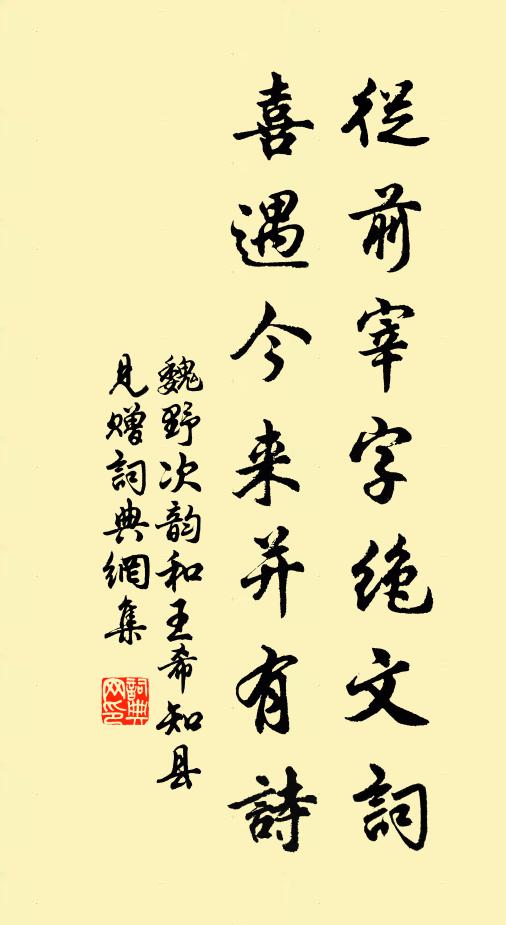 從前宰字絕文詞
喜遇今來并有詩
魏野次韵和王希知县
見赠詞典網集
詞典
网印